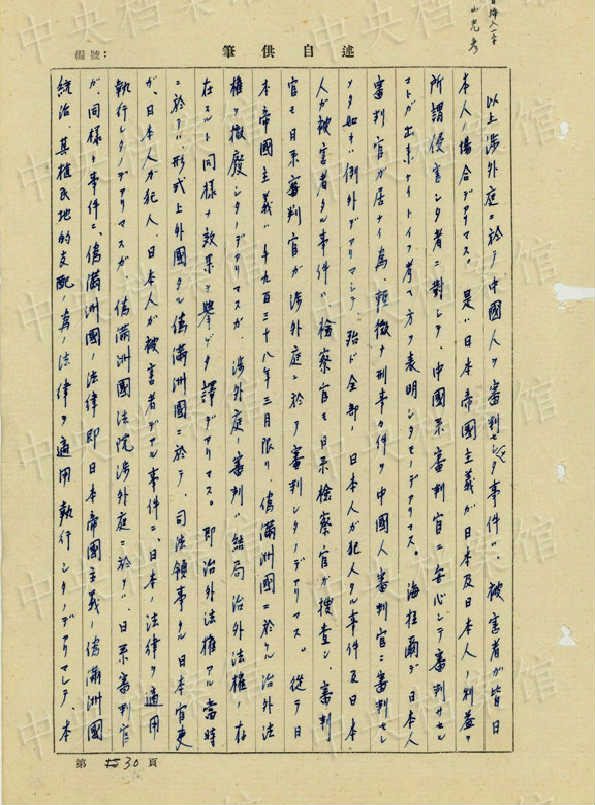 編號:
述自供筆
以上渉外庭ニ於テ中國人ヲ審判シタ事件ハ、被害者ガ皆日
本人ノ場合デアリマス。是ハ日本帝國主義ガ日本及日本人ノ利益ヲ
所謂侵害シタ者ニ對シテ、中國系審判官ニ安心シテ審判サセル
コトガ出来ナイトイフ考ヘ方ヲ表明シタモノデアリマス。海拉爾デ日本人
審判官ガ居ナイ為、軽微ナ刑事々件ヲ中國人審判官ニ審判セシ
メタ如キハ例外デアリマシテ、殆ド全部ノ日本人ガ犯人タル事件及日本
人ガ被害者タル事件ハ、檢察官モ日系檢察官ガ捜査シ、審判
官モ日系審判官ガ渉外庭ニ於テ審判シタノデアリマス。従テ日
本帝國主義ハ一千九百三十八年三月限リ、偽滿洲國ニ於ケル治外法
權ヲ撤廢シタノデアリマスガ、渉外庭ノ審判ハ結局治外法權ノ存
在スルト同様ナ效果ヲ擧ゲタ譯デアリマス。即治外法權アル當時
ニ於テハ、形式上外國タル偽滿洲國ニ於テ、司法領事タル日本官吏
ガ、日本人ガ犯人、日本人ガ被害者デアル事件ニ、日本ノ法律ヲ適用
執行シタノデアリマスガ、偽滿洲國法院渉外庭ニ於テハ、日系審判官
ガ、同様ナ事件ニ、偽滿洲國ノ法律即日本帝國主義ノ偽滿洲國
統治、其植民地的支配ノ為ノ法律ヲ適用執行シタノデアリマシテ、本
第30頁
中央档案馆